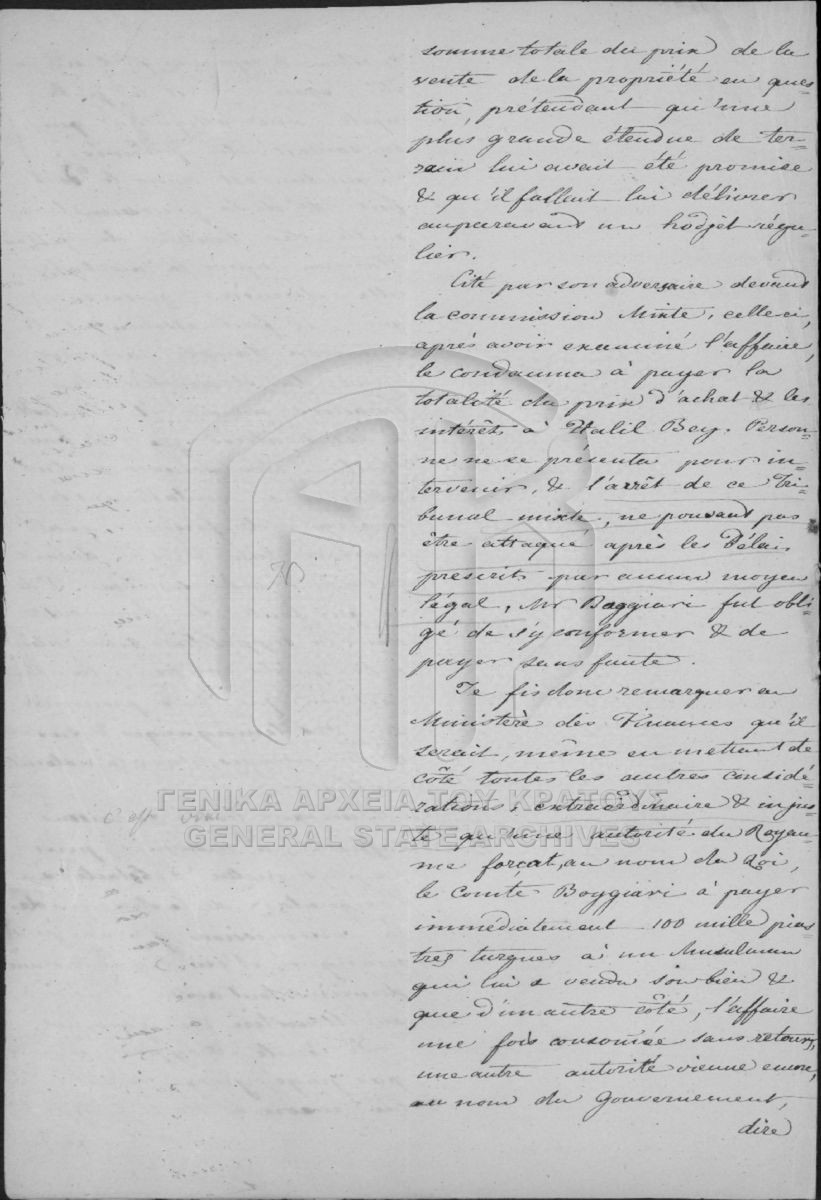 somme totale du prix de la
vente de la propriété en ques=
tion, prétendant qu'une
plus grande étendue de ter=
rain lui avait été promise
& qu'il fallut lui délivrer
auparavant un hodjet régu-
lier.
Cité par son adversaire devant
la commission Mixte, celle-ci,
après avoir examiné l'affaire,
le condamna à payer la
totalité du prix d'achat & les
intérêts à Halil Bey. Person-
ne ne se présenta pour in-
tervenir, & l'arrêt de ce Tri-
bunal mixte, ne pouvant pas
être attaqué après les Délais
prescrits par aucun moyen
légal, Mr Boggiari fut obli-
gé de s'y conformer & de
payer sans faute.
Je fis donc remarquer au
Ministère des Finances qu'il
serait, même en mettant de
côté toutes les autres considé-
rations, extraordinaire & injus-
te qu'une autorité du Royau-
me forçat, au nom du Roi,
le Comte Boggiari à payer
immédiatement 100 mille pias=
tres turques à un Musulman
qui lui a vendu son bien &
que d'un autre côté, l'affaire
une fois consomée sans retour,
une autre autorité vienne encore,
au nom du Gouvernement,
dire
ΓΕΝΙΚΑ ΑΡΧΕΙΑ ΤΟΥ ΚΡΑΤΟΥΣ
GENERAL STATE ARCHIVES